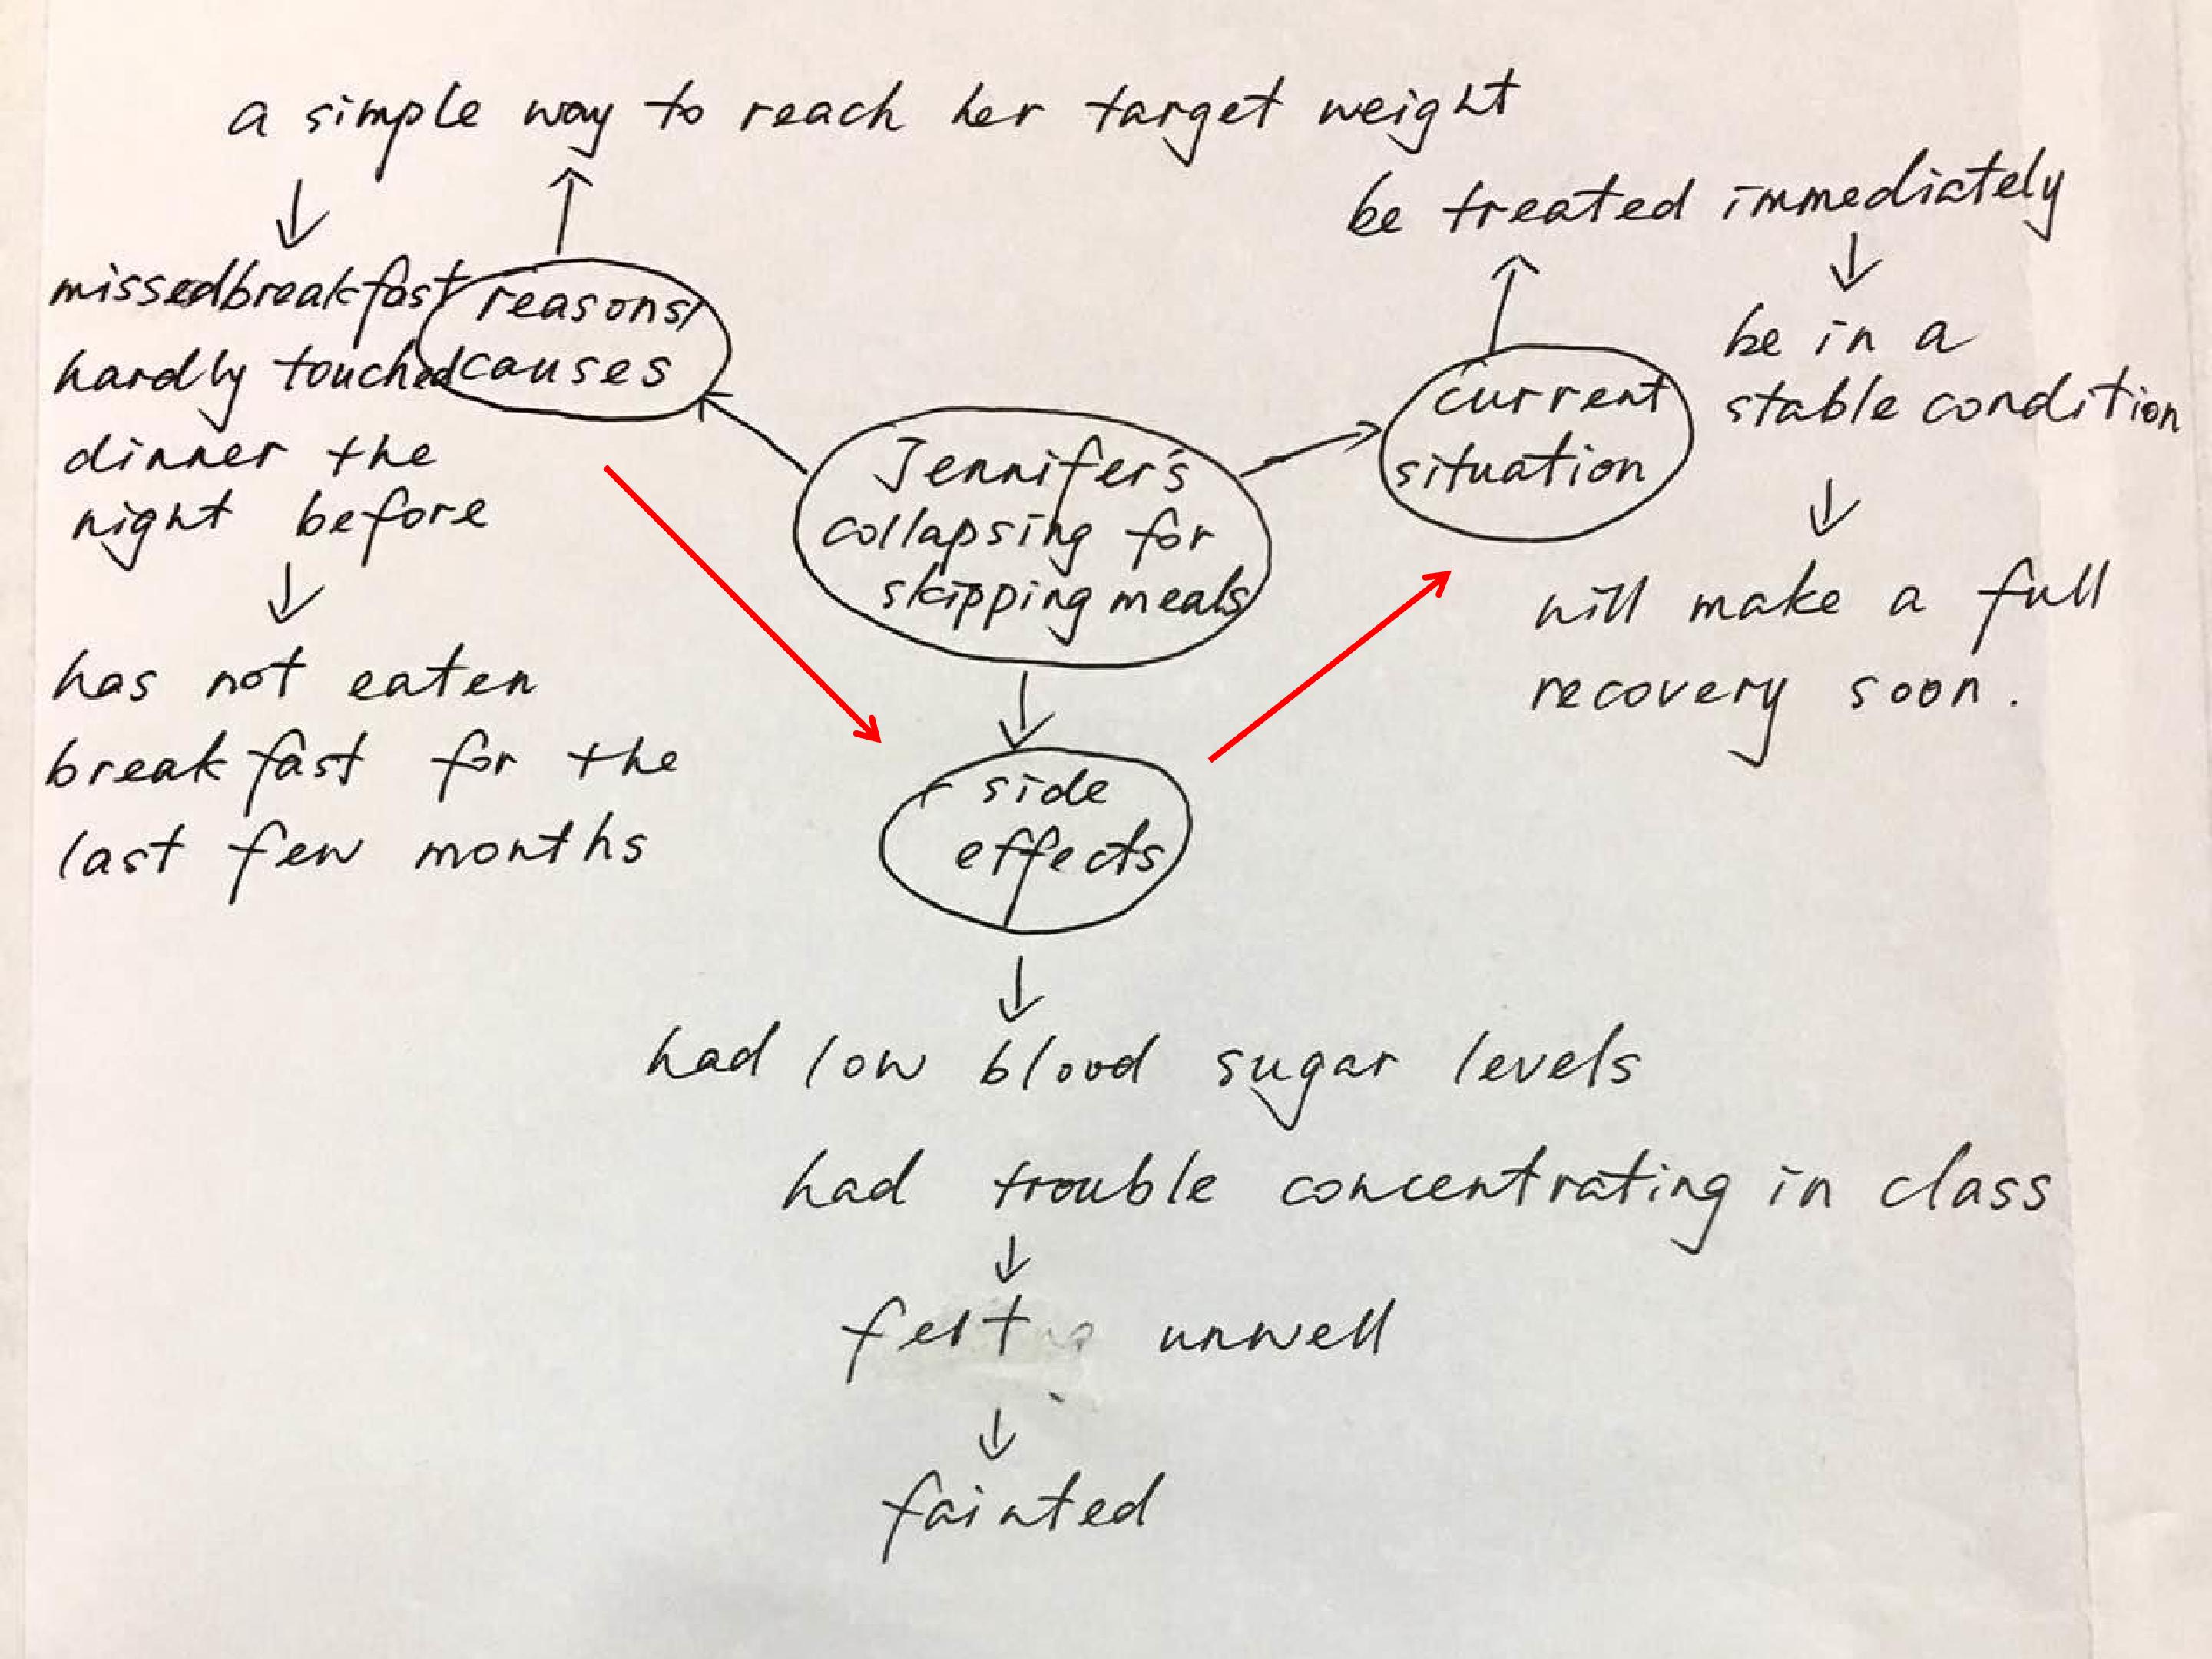 a simple way to reach her target weight
be treated immediately
missedbreakfast
hardly touched
dinner the
night before
has not eaten
breakfast for the
last few months
reasons/
causes
Jennifer's
collapsing for
skipping meals
current
situation
be in a
stable condition
will make a full
recovery soon.
side
effects
had low blood sugar levels
had trouble concentrating in class
felt unwell
fainted